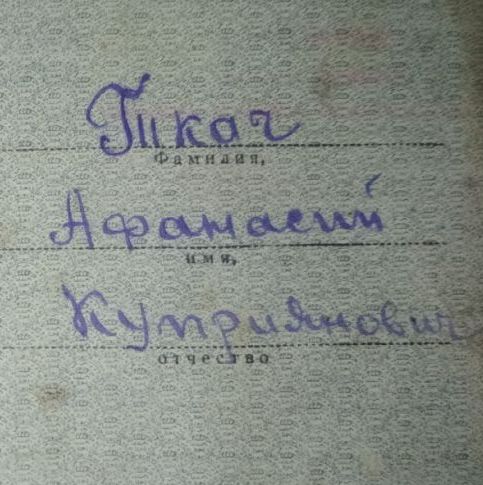 Ткач
Фамилия,
Афанасий
имя,
Куприянович
отчество